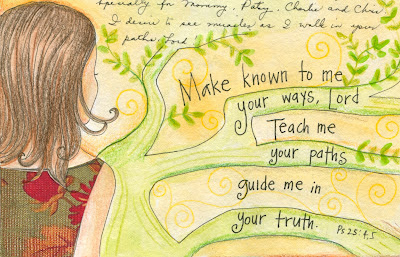 specially for Mommy, Patsy, Charlie and Chris.
I desire to see miracles as I walk in your
paths Lord
Make known to me
your ways, Lord
Teach me
your paths
guide me in
your truth.
Ps 25:4,5